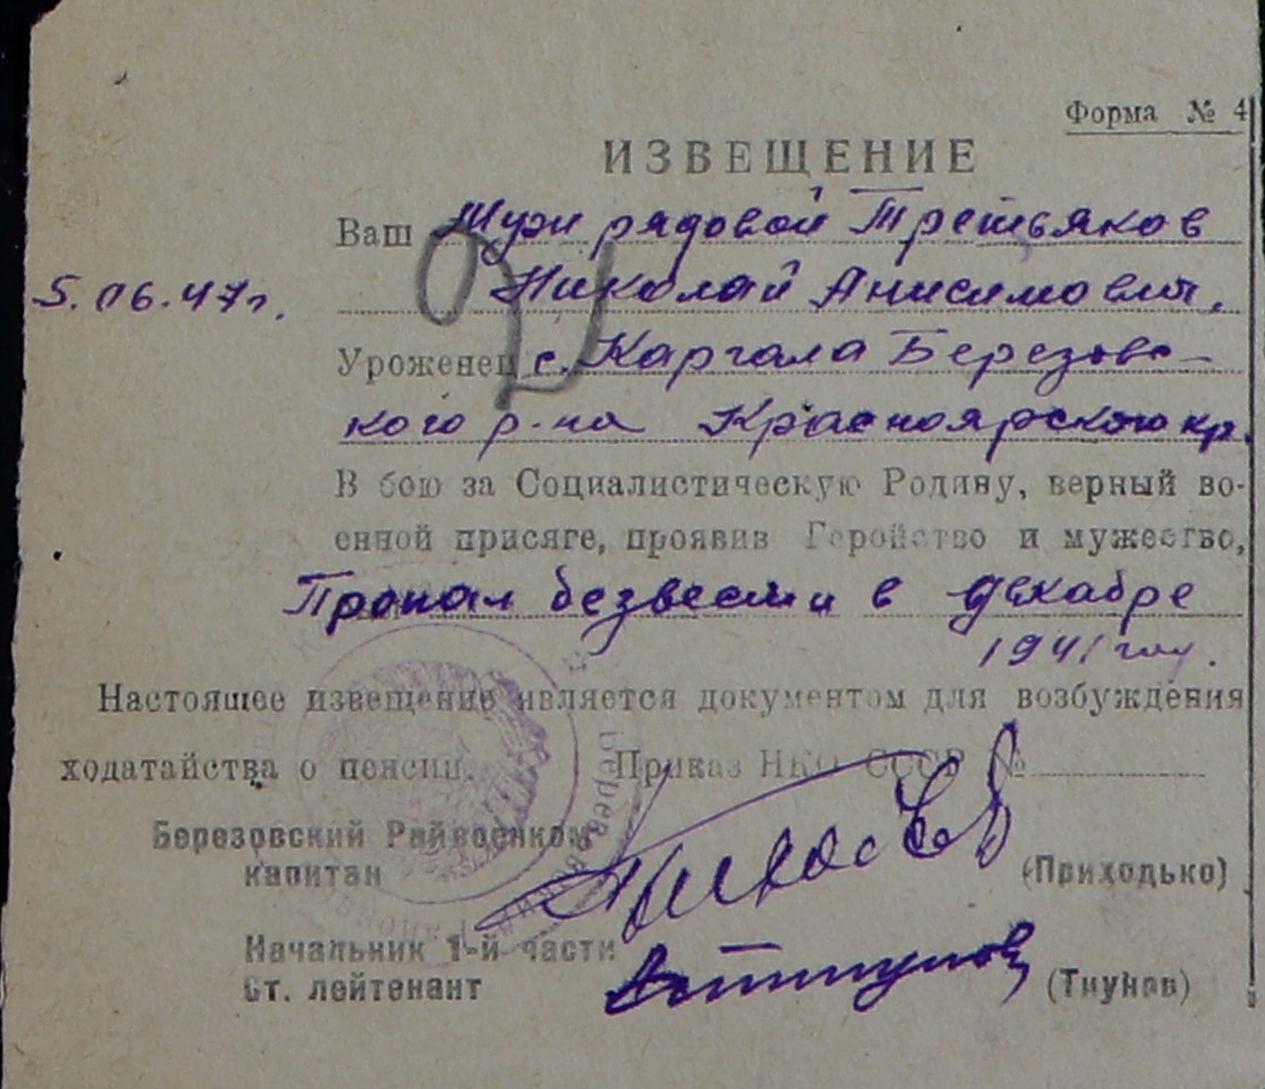 Форма № 4
ИЗВЕЩЕНИЕ
Ваш Муж рядовой Третьяков
5.06.47г.
Николай Анисимович.
Уроженец с. Каргала Березовс-
кого р-на Красноярского кр.
В бою за Социалистическую Родину, верный во-
енной присяге, проявив Геройство и мужество,
Пропал безвести в декабре
1941 году.
Настоящее извещение является документом для возбуждения
ходатайства о пенсии. Приказ НКО СССР №
Березовский Райвоенком
капитан (Приходько)
Начальник 1-й части
Ст. лейтенант (Тиунов)